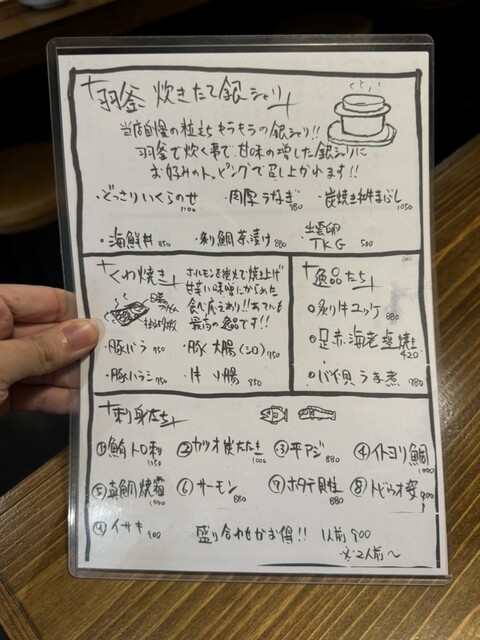 羽釜 炊きたて銀シャリ
当店自慢の粒立ちキラキラの銀シャリ!!
羽釜で炊く事で、甘味の増した銀シャリに
お好みのトッピングで召し上がれます!!
・どっさりいくらのせ 1100
・肉厚うなぎ 980
・炭焼き和牛まぶし 1050
・海鮮丼 850
・刻み鯛茶漬け 880
・出雲卵 TKG 500
くわ焼き
ホルモンを炭火で焼き上げ
甘辛い味噌にからめた
食べ応えあり!!あてにも
最高の逸品です!!
・豚バラ 750
・豚大腸(シロ) 750
・豚ハラミ 750
・牛小腸 850
逸品たち
炙り牛ユッケ 880
足赤海老塩焼き 420
バイ貝うま煮 780
刺身たち
①鮪トロ刺 1350
②カツオ炭たたき 1000
③平アジ 880
④イトヨリ鯛 1000
⑤真鯛焼霜 1000
⑥サーモン 880
⑦ホタテ貝柱 880
⑧トビウオ姿 900
⑨イサキ 900
盛り合わせがお得!! 1人前 900
※2人前〜